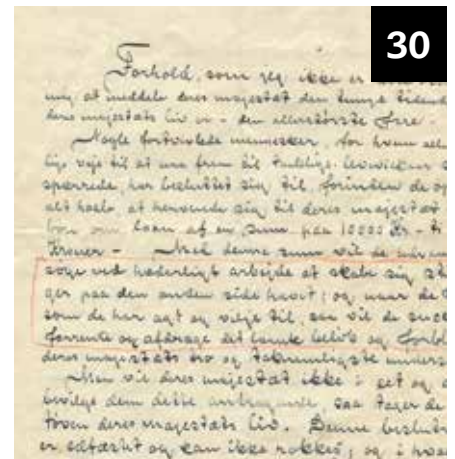 30
Forhold, som jeg ikke er
mig at meddele deres majestæt den tunge
deres majestæts liv er - den allerstørste
Nogle fortvivlede mennesker, for hvem
lige veje til at naa frem til
spærrede, har besluttet sig til, forinden de op
alt haab, at henvende sig til deres majestæt
bøn om laan af en sum paa 10000 Kr - ti
Kroner - Med denne sum vil de
søge ved hæderligt arbejde at skabe sig
ger paa den anden side havet; og naar de
som de har agt og vilje til, saa vil de
forrente og afdrage det laante beløb og
deres majestæts tro og taknemligste
Men vil deres majestæt ikke
bevilge dem dette andragende, saa tager de
deres majestæts liv. Denne
er og kan ikke rokkes; og i